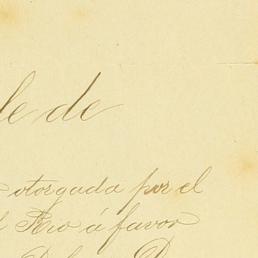 le de
otorgada por el
Rio á favor